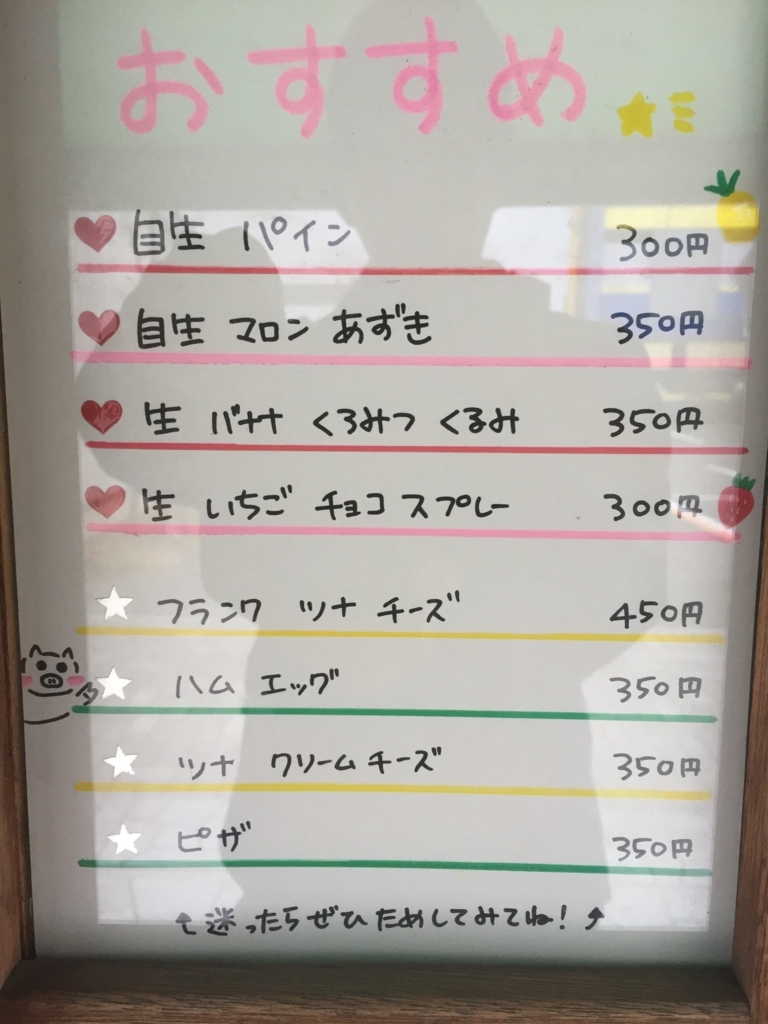 おすすめ
自生 パイン 300円
自生 マロン あずき 350円
生 バナナ くろみつ くるみ 350円
生 いちご チョコ スプレー 300円
フランク ツナ チーズ 450円
ハム エッグ 350円
ツナ クリームチーズ 350円
ピザ 350円
↑迷ったらぜひためしてみてね!↑